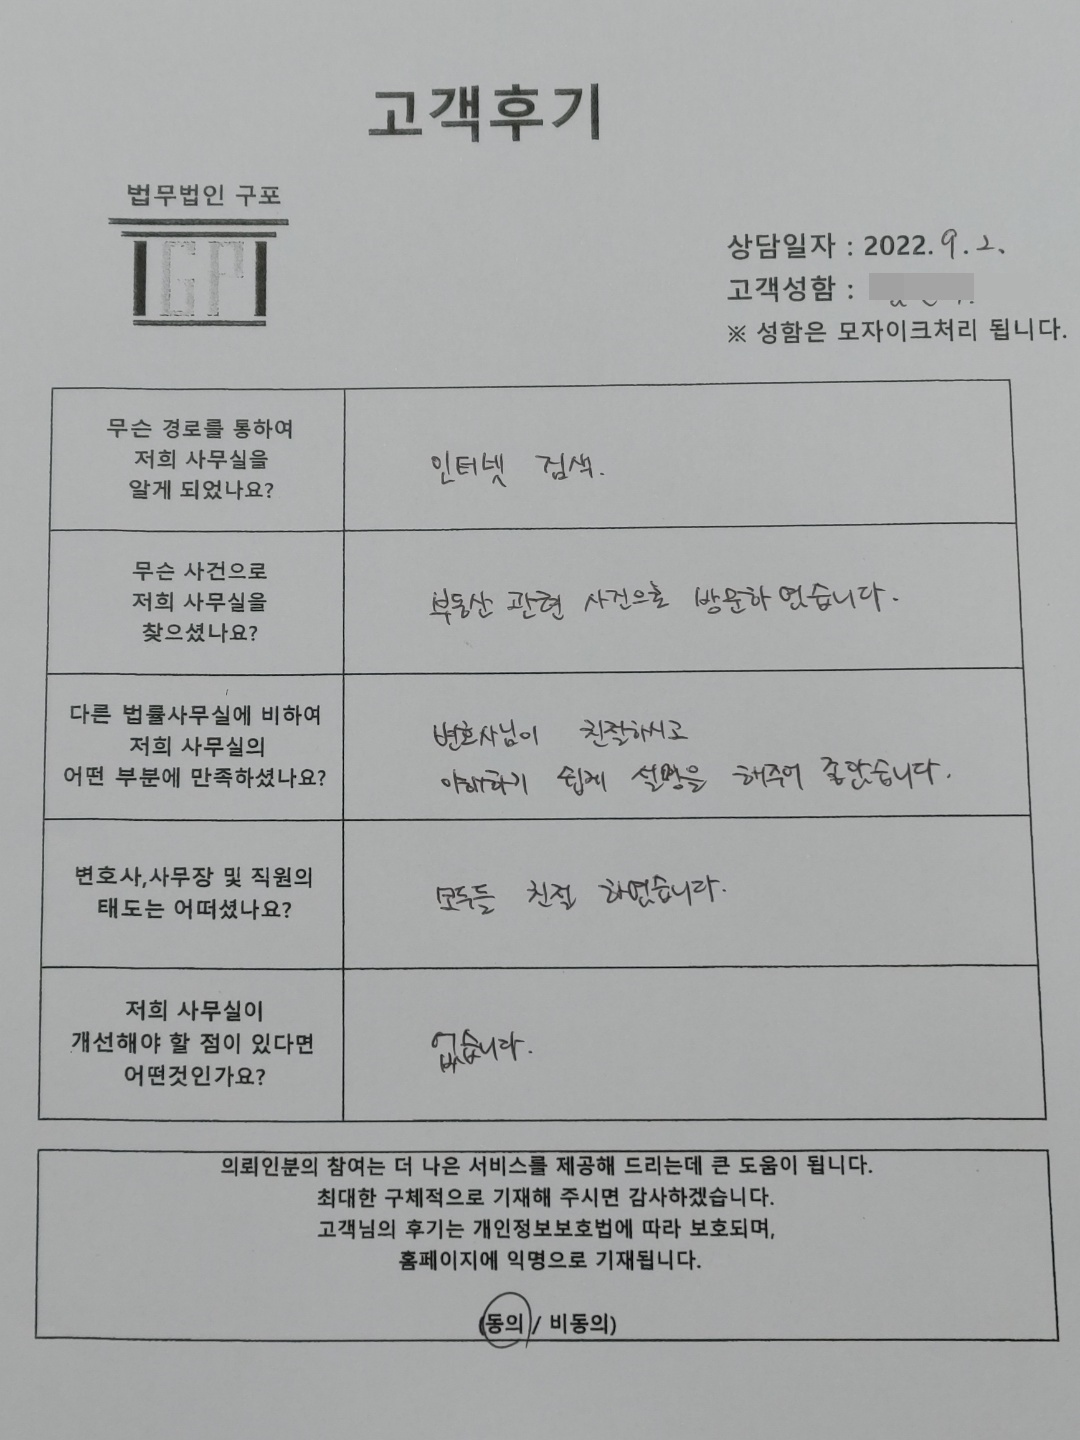 고객후기
법무법인 구포
GP
상담일자 : 2022. 9. 2.
고객성함 :
※ 성함은 모자이크처리 됩니다.
무슨 경로를 통하여
저희 사무실을
알게 되었나요?
인터넷 검색.
무슨 사건으로
저희 사무실을
찾으셨나요?
부동산 관련 사건으로 방문하였습니다.
다른 법률사무실에 비하여
저희 사무실의
어떤 부분에 만족하셨나요?
변호사님이 친절하시고
이해하기 쉽게 설명을 해주어 좋았습니다.
변호사,사무장 및 직원의
태도는 어떠셨나요?
모두들 친절 하였습니다.
저희 사무실이
개선해야 할 점이 있다면
어떤것인가요?
없습니다.
의뢰인분의 참여는 더 나은 서비스를 제공해 드리는데 큰 도움이 됩니다.
최대한 구체적으로 기재해 주시면 감사하겠습니다.
고객님의 후기는 개인정보보호법에 따라 보호되며,
홈페이지에 익명으로 기재됩니다.
(동의 / 비동의)